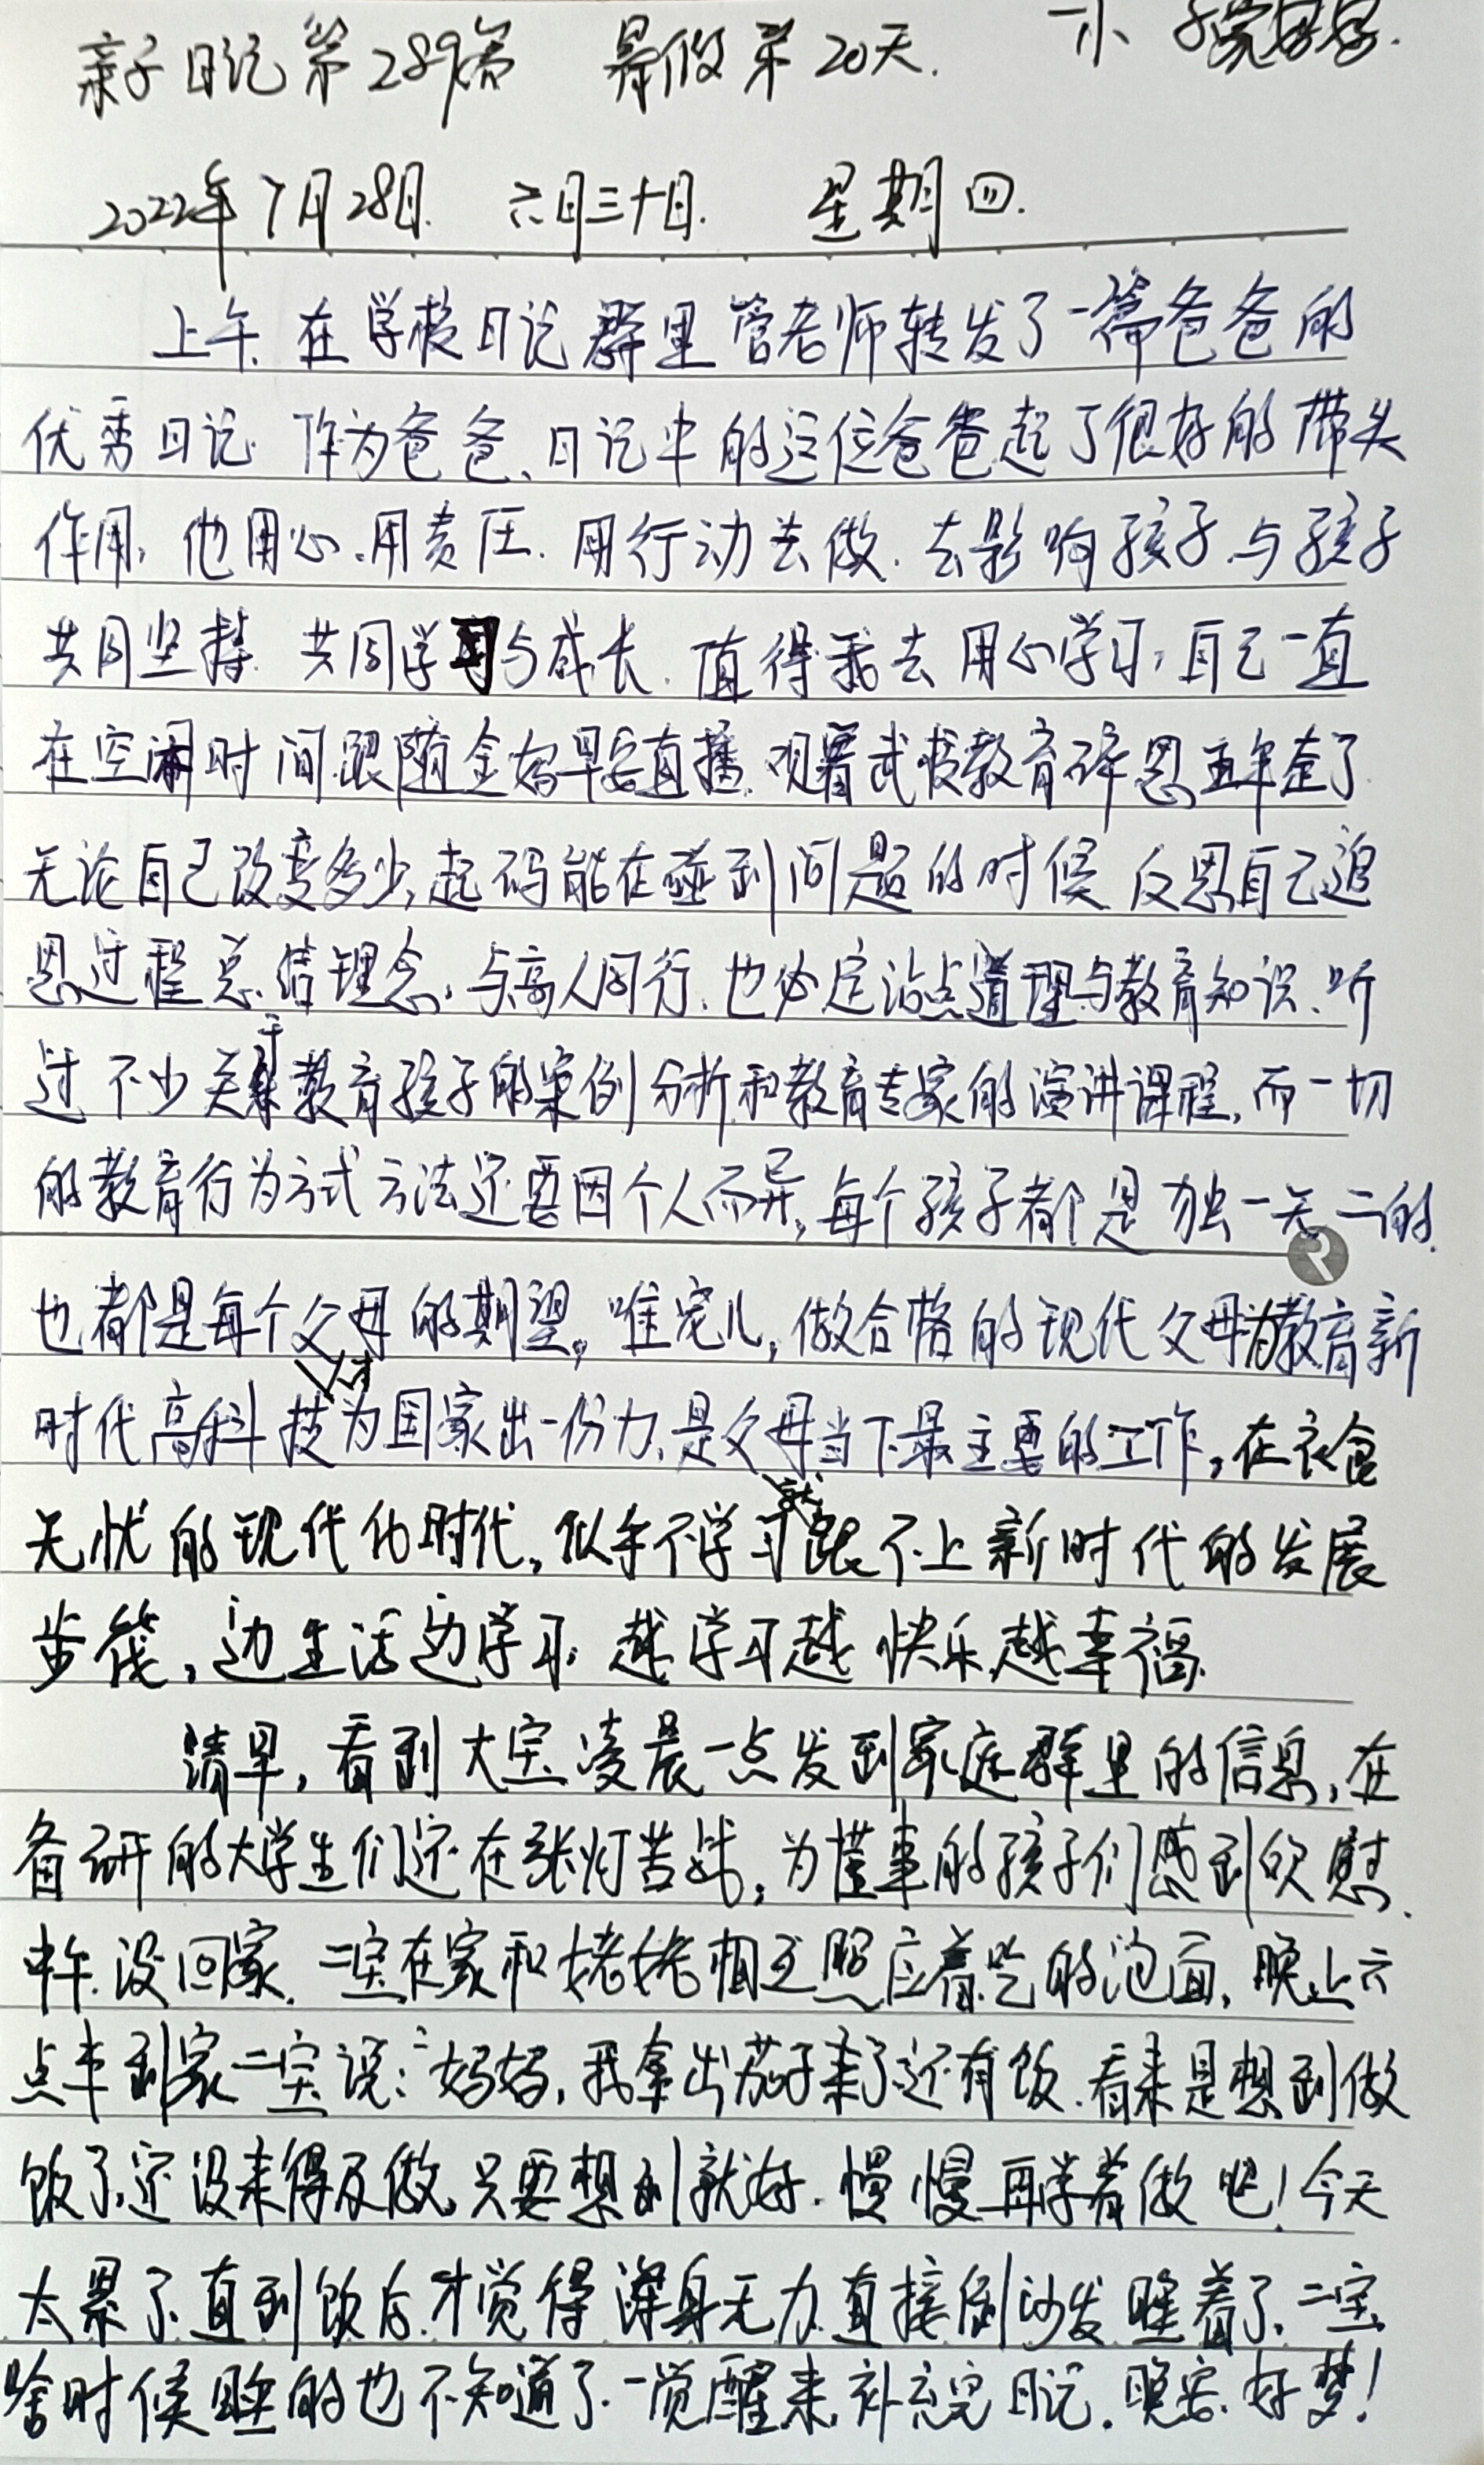 亲子日记第289篇 暑假第20天. 一小
2022年7月28日. 六月三十日. 星期四.
上午.在学校日记群里管老师转发了一篇爸爸的
优秀日记.作为爸爸、日记中的这位爸爸起了很好的带头
作用,他用心.用责任.用行动去做.去影响孩子.与孩子
共同坚持.共同学习与成长.值得我去用心学习,自己一直
在空闲时间跟随金妈早安直播.观看武校教育碎思五年查了.
无论自己改变多少,起码能在碰到问题的时候反思自己追
思过程总结理念,与高人同行.也必定沾点道理与教育知识.听
过不少关于教育孩子的案例分析和教育专家的演讲课程,而一切
的教育行为方式方法还要因个人而异,每个孩子都是独一无二的.
也都是每个父母的期望。唯宠儿,做合格的现代父母为教育新
时代高科技人才为国家出一份力.是父母当下最主要的工作,在衣食
无忧的现代化时代,似乎不学习就跟不上新时代的发展
步伐,边生活边学习.越学习越快乐越幸福.
清早,看到大宝凌晨一点发到家庭群里的信息,在
备研的大学生们还在张灯苦战,为懂事的孩子们感到欣慰.
中午.没回家.二宝在家和姥姥相互照应着吃的泡面,晚上六
点半到家二宝说:“妈妈,我拿出茄子来了还有饭.看来是想到做
饭了,还没来得及做,只要想到就好.慢慢再学着做吧!今天
太累了.直到饭后才觉得浑身无力直接倒沙发睡着了.二宝
啥时候睡的也不知道了.一觉醒来,补充完日记.晚安.好梦!